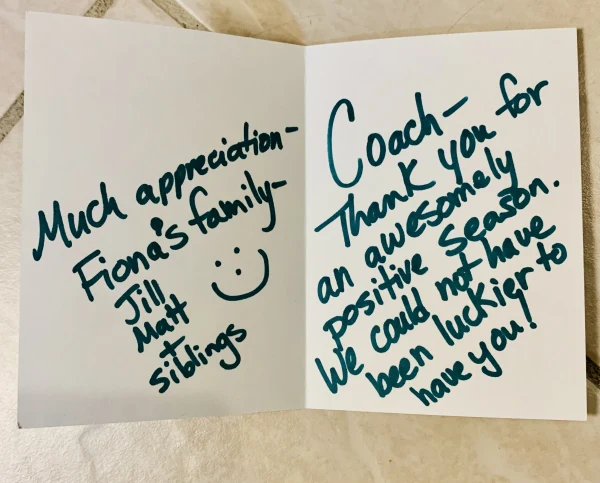 Much appreciation-
Fiona's family-
Jill
Matt
+
siblings
Coach-
Thank you for
an awesomely
positive season.
We could not have
been luckier to
have you!